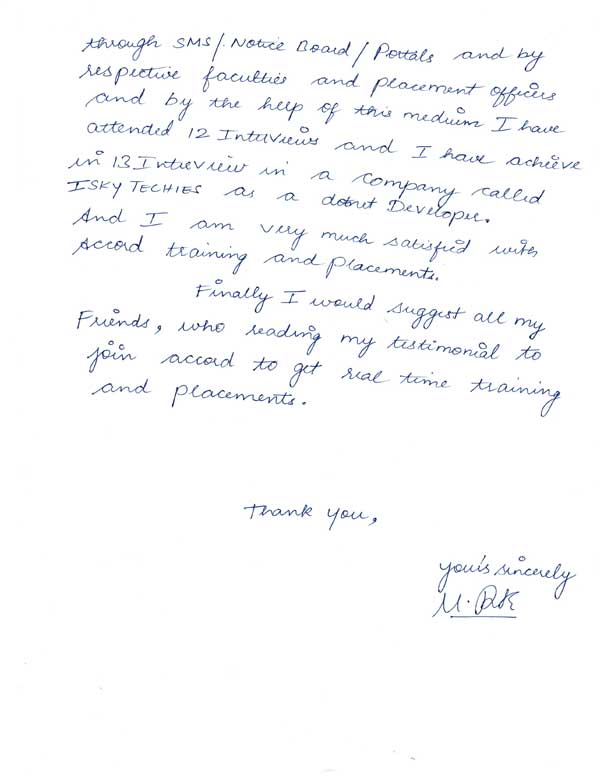 through SMS/ Notice Board / Portals and by
respective faculties and placement officers
and by the help of this medium I have
attended 12 Interviews and I have achieve
in 13 Interview in a company called
ISKY TECHIES as a dotnet Developer.
And I am very much satisfied with
Accord training and placements.
Finally I would suggest all my
Friends, who reading my testimonial to
join accord to get real time training
and placements.
Thank you,
your's sincerely
M.